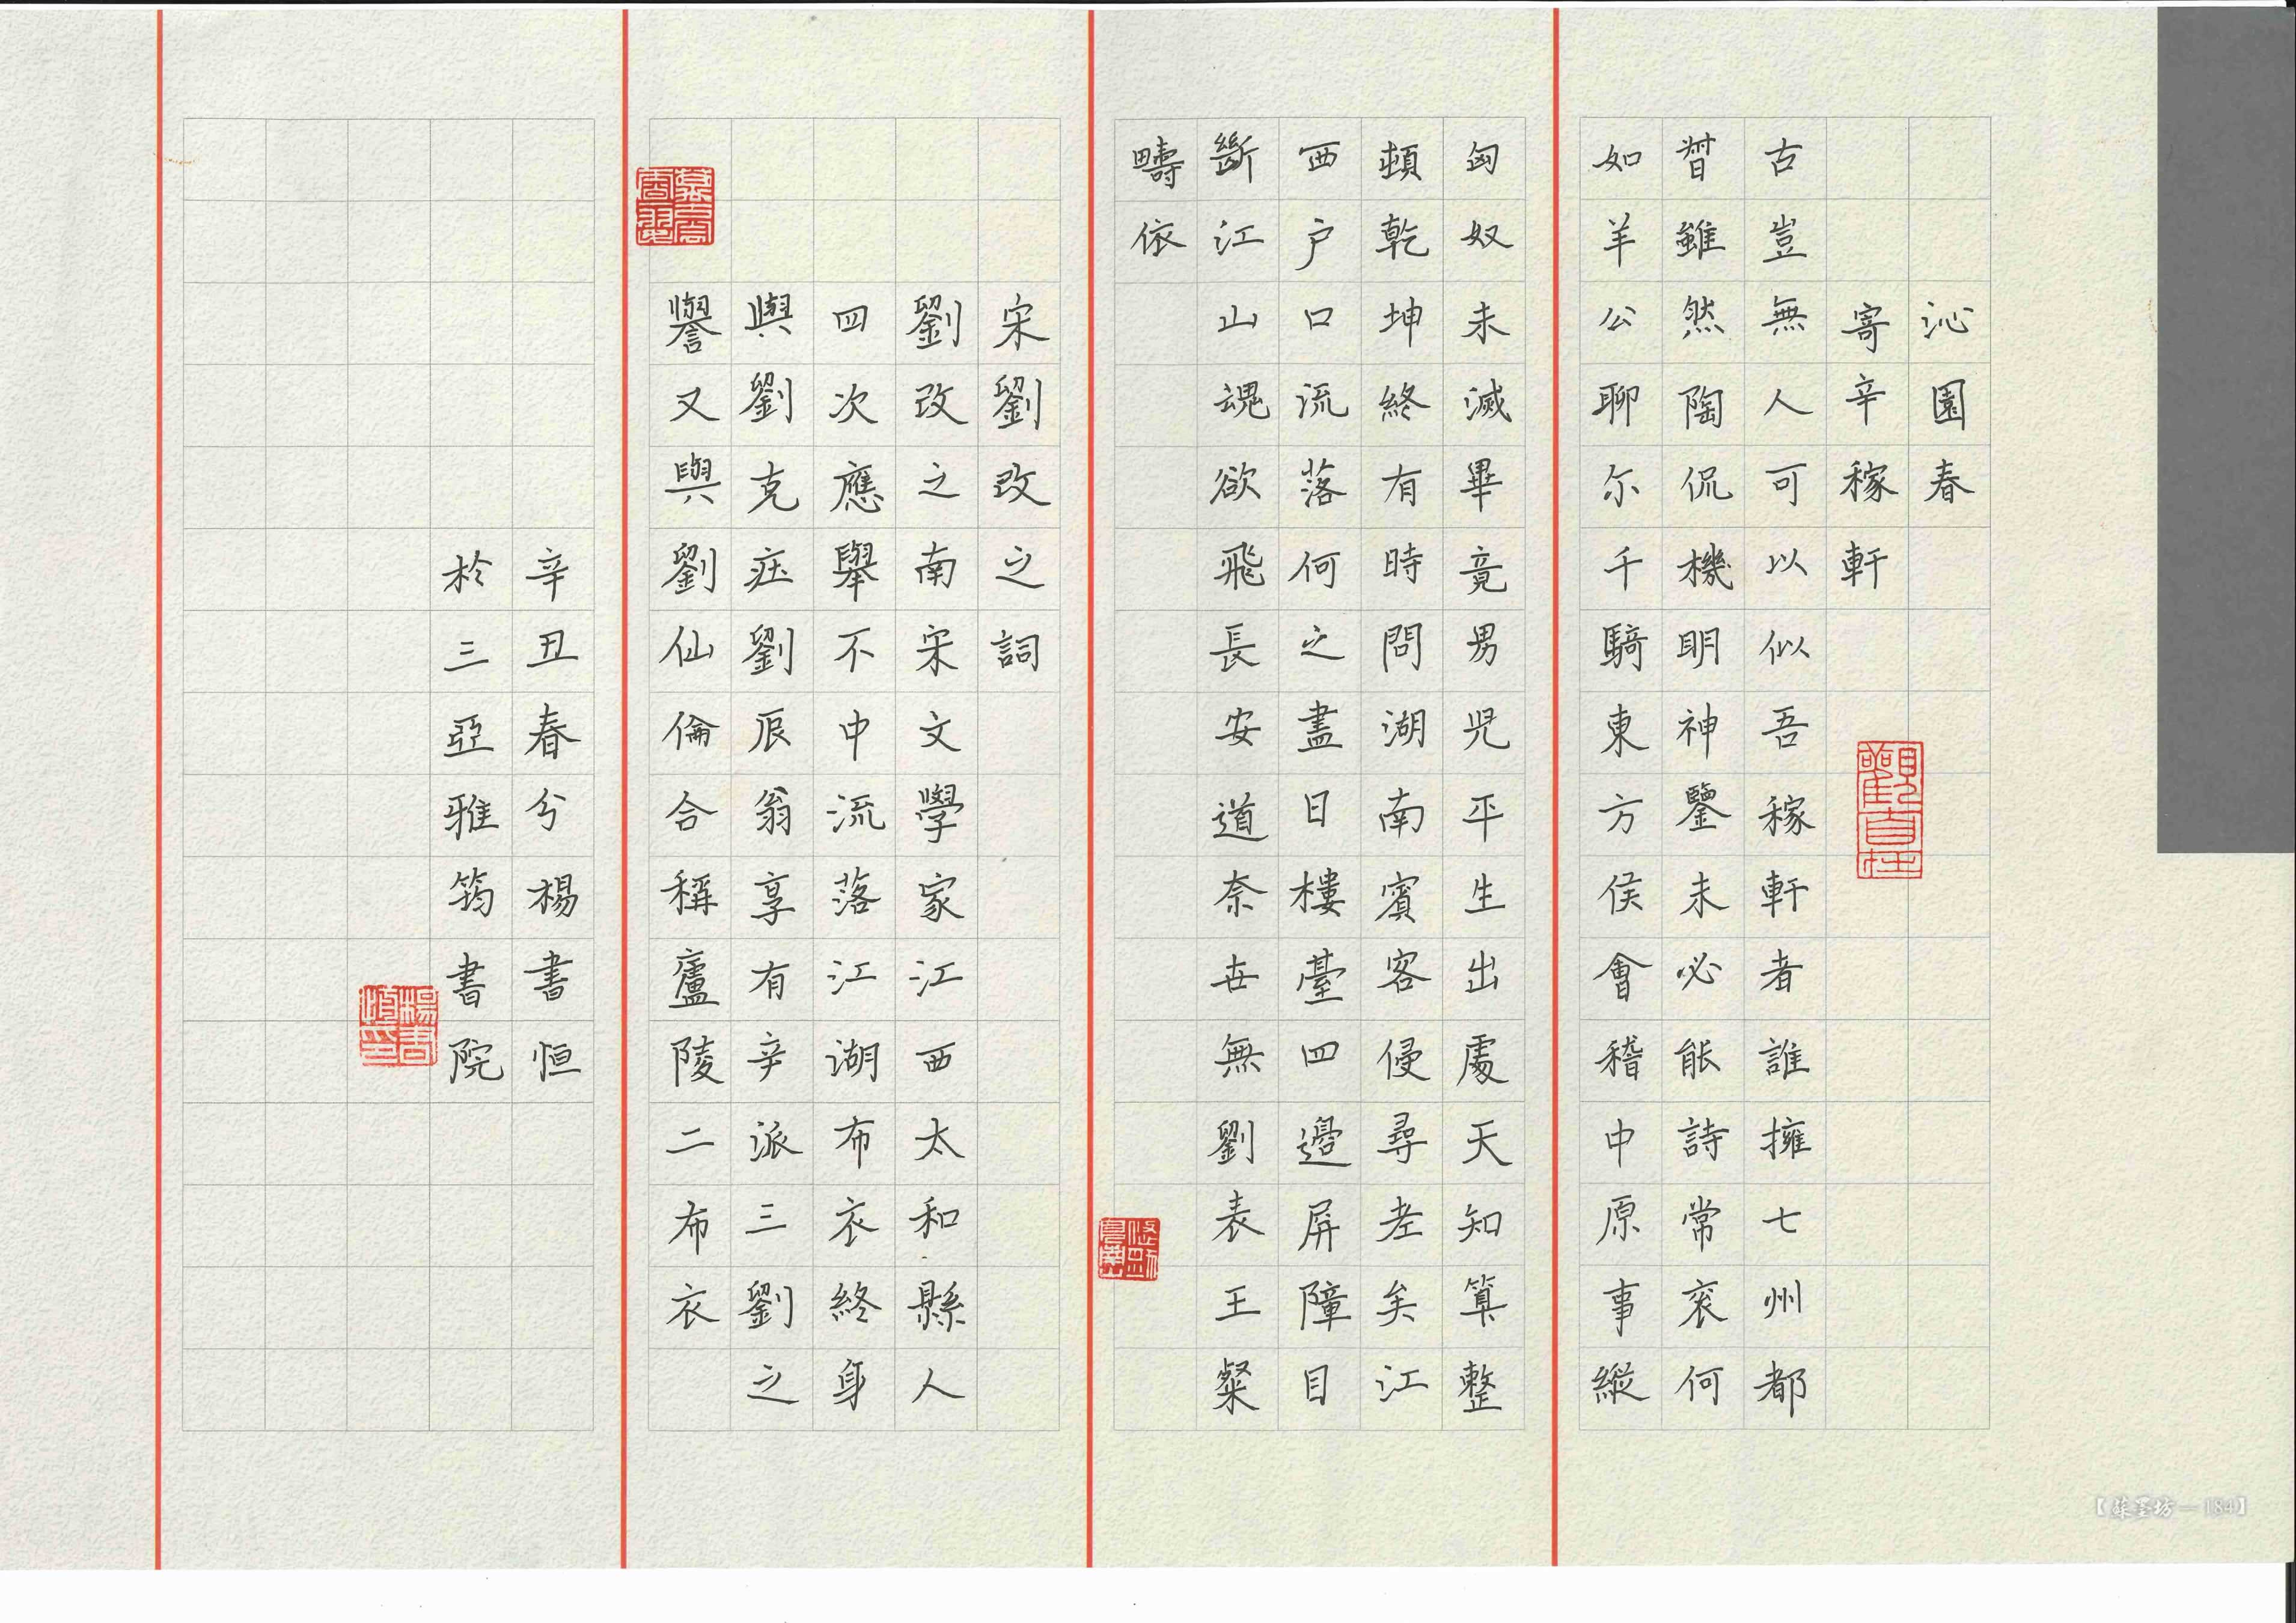 沁園春
寄辛稼軒
古豈無人可以似吾稼軒者誰擁七州都
督雖然陶侃機明神鑒未必能詩常衮何
如羊公聊尔千騎東方侯會稽中原事縱
匈奴未滅畢竟男児平生出處天知算整
頓乾坤終有時問湖南賓客侵尋老矣江
西户口流落何之盡日樓臺四邊屏障目
斷江山魂欲飛長安道奈世無劉表王粲
疇依
宋劉改之詞
劉改之南宋文學家江西太和縣人
四次應舉不中流落江湖布衣終身
與劉克莊劉辰翁享有辛派三劉之
譽又與劉仙倫合稱廬陵二布衣
辛丑春兮楊書恒
於三亞雅筠書院
【蘇墨坊—184】